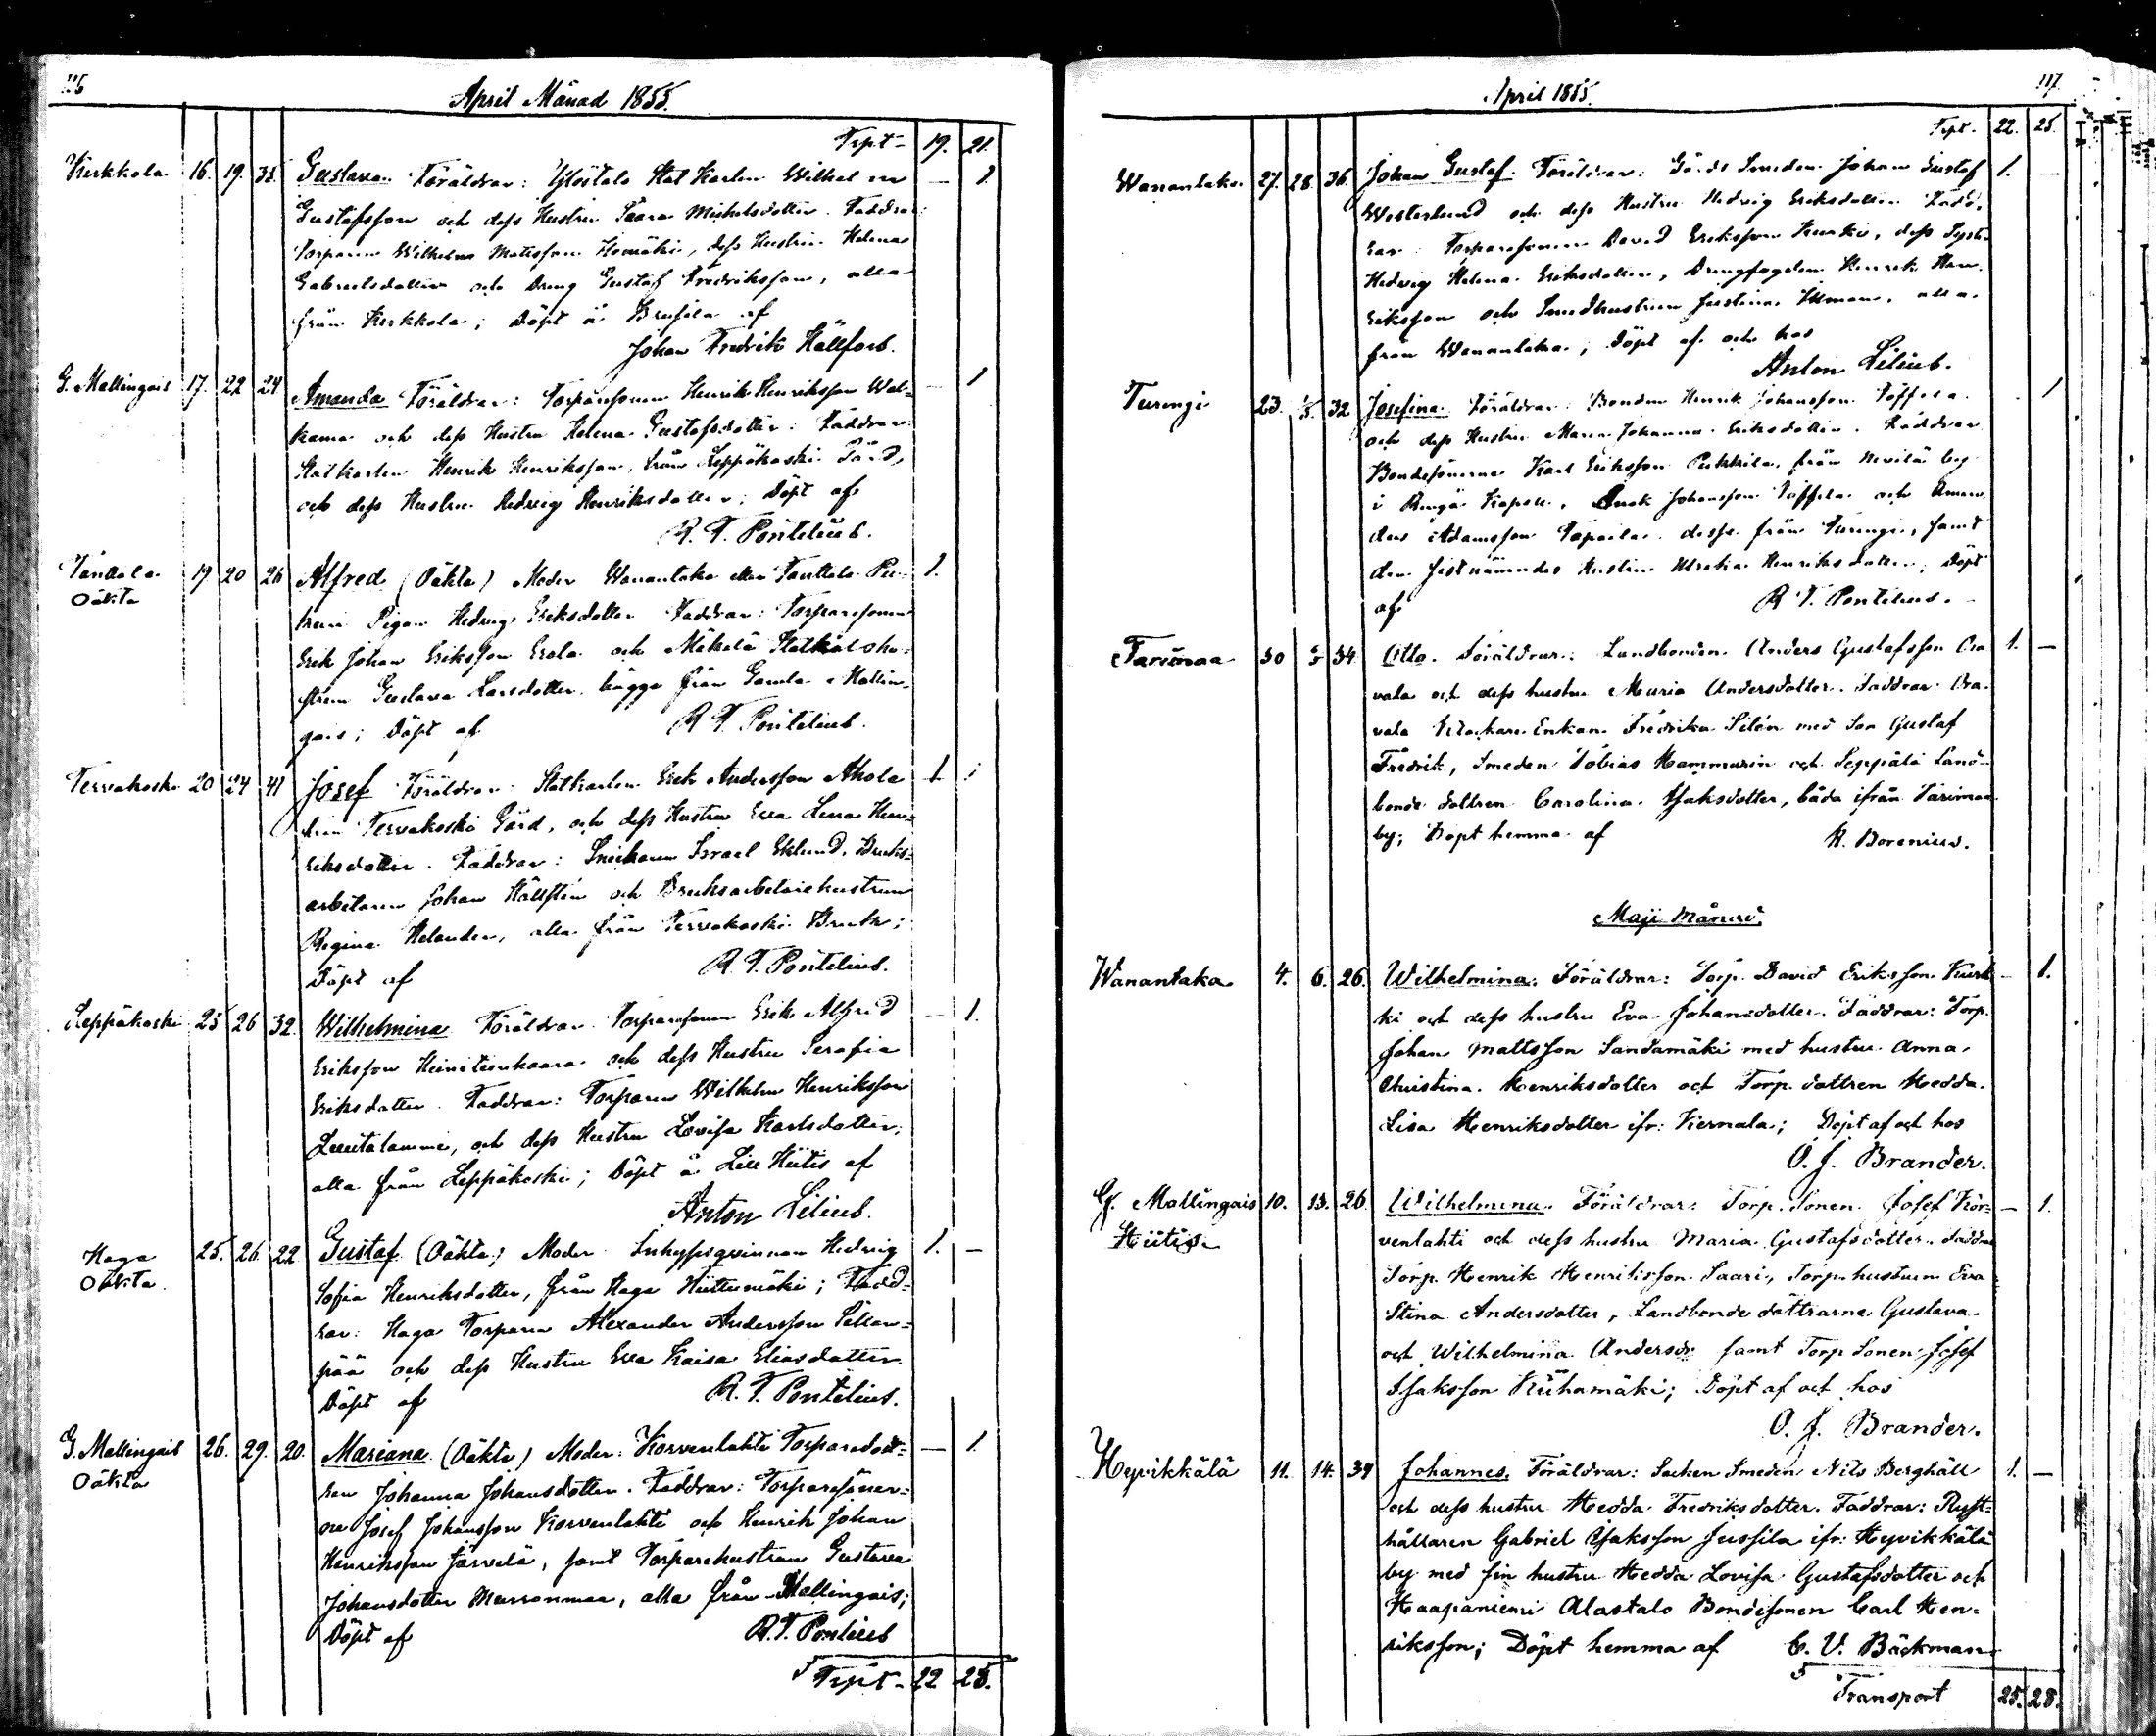 116
April Månad 1855.
Trpt= 19. 21.
Kerkkola 16. 19. 35. Gustava. Föräldrar: Ylöstalo Stat Karlen Wilhelm — 1.
Gustafsson och dess Hustru Saara Michelsdotter. Faddrar:
Torparen Wilhelm Matsson, dess Hustru Helena
Gabrielsdotter och Dreng Gustaf Fredriksson, alla
från Kerkkola; Döpt å af
Johan Fredrik Hällfors.
G. Mallingais 17. 22 24 Amanda Föräldrar: Torparesonen Henrik Henriksson Wal= — 1
kama och dess Hustru Helena Gustafsdotter. Faddrar:
Statkarlen Henrik Henriksson, från Leppäkoski Gård,
och dess Hustru Hedvig Henriksdotter; Döpt af
R. F. Pontelius.
Tanttala 19 20 26 Alfred (Oäkta) Moder Wanantaka eller Tanttala 1.
Oäkta
Pigan Hedvig Eriksdotter Faddrar: Torparesonen
Erik Johan Eriksson Erola och Mäkelä Statkarlshu=
strun Gustava Larsdotter bägge från Gamla Mallin=
gais; Döpt af R. F. Pontelius.
Tervakoski 20 24 41 Josef Föräldrar: Statkarlen Erik Andersson Ahola 1.
från Tervakoski Gård, och dess Hustru Eva Lena Hen=
riksdotter. Faddrar: Snickaren Israel Eklund, Bruks=
arbetaren Johan Hällsten och Bruksarbetarehustrun
Regina Helander, alla från Tervakoski Bruk;
Döpt af R. F. Pontelius.
Leppäkoski 25 26 32. Wilhelmina Föräldrar Torparesonen Erik Alfred — 1.
Eriksson och dess Hustru Serafia
Eriksdotter. Faddrar: Torparen Wilhelm Henriksson
Luutalammi, och dess Hustru Lovisa Karlsdotter,
alla från Leppäkoski; Döpt å Lill Hiitis af
Anton Lilius.
Haga 25. 26. 22 Gustaf (Oäkta) Moder Inhysesqvinnan Hedvig 1. —
Oäkta
Sofia Henriksdotter, från Haga Hiittumäki; Fadd=
rar: Haga Torparen Alexander Andersson
pää och dess Hustru Eva Kaisa Eliasdotter.
Döpt af R. F. Pontelius.
G. Mallingais 26. 29. 20. Mariana (Oäkta) Moder: Korvenlahti Torparedott= — 1.
Oäkta
ren Johanna Johansdotter. Faddrar: Torparesöner=
ne Josef Johansson Korvenlahti och Henrik Johan
Henriksson Järvelä, samt Torparehustrun Gustava
Johansdotter, alla från Mallingais;
Döpt af R. F. Pontelius
Trpt- 22 25.
117.
April 1855.
Trpt. 22. 25.
Wanantaka. 27. 28. 36. Johan Gustaf. Föräldrar: Gårds Smeden Johan Gustaf 1. —
Westerlund och dess Hustru Hedvig Eriksdotter. Fadd,
rar: Torparesonen David Eriksson Kurki, dess Syst.
Hedvig Helena Eriksdotter, Drengfogden Henrik Hen.
riksson och Smedhustrun Justina, alla
från Wanantaka; Döpt af och hos
Anton Lilius.
Turengi 23. 1/5. 32 Josefina. Föräldrar: Bonden Henrik Johansson Töffera — 1
och dess Hustru Maria Johanna Eriksdotter. Faddrar
Bondesönerne Karl Eriksson Pekkila, från by
i Kapell, Isak Johansson Töffera och Aman
dus Adamsson desse från Turengi, samt
den sistnämndes Hustru Ulrika Henriksdotter, Döpt
af R. F. Pontelius.
Tarimaa 30 34 Otto. Föräldrar: Landbonden Anders Gustafsson Ora 1. —
vala och dess hustru Maria Andersdotter. Faddrar: Ora.
vala Klockare Enkan Fredrika Silén med Son Gustaf
Fredrik, Smeden Tobias Hammarin och Seppälä Land=
bonde dottren Carolina Isaksdotter, båda ifrån Tarimaa
by; Döpt hemma af K. Borenius.
Maji Månad.
Wanantaka 4. 6. 26. Wilhelmina. Föräldrar: Torp. David Eriksson Kurk — 1.
ki och dess hustru Eva Johansdotter. Faddrar: Torp.
Johan Mattsson Sandamäki med hustru Anna
Christina Henriksdotter och Torp. dottren Hedda
Lisa Henriksdotter ifr: Kernala; Döpt af och hos
O. J. Brander.
G. Mallingais 10. 13. 26. Wilhelmina. Föräldrar: Torp. Sonen Josef Kor= — 1.
Hiitis
venlahti och dess hustru Maria Gustafsdotter. Faddrar
Torp. Henrik Henriksson Saari, Torp. hustrun Eva
Stina Andersdotter, Landbonde döttrarne Gustava
och Wilhelmina Andersdr samt Torp Sonen Josef
Isaksson Riihimäki; Döpt af och hos
O. J. Brander.
Hyvikkälä 11. 14. 34 Johannes. Föräldrar: Socken Smeden Nils Berghäll 1. —
och dess hustru Hedda Fredriksdotter. Faddrar: Rust=
hållaren Gabriel Isaksson Jussila ifr: Hyvikkälä
by med sin hustru Hedda Lovisa Gustafsdotter och
Haapaniemi Alastalo Bondesonen Carl Hen=
riksson; Döpt hemma af C. V. Bäckman.
Transport 25. 28.